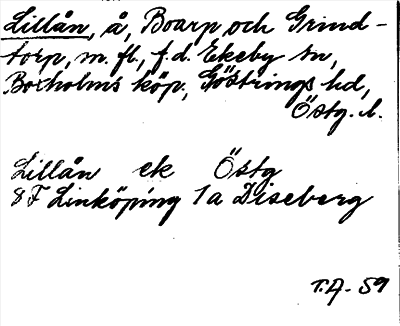 Lillån, å, Boarp och Grind-
torp, m. fl., f.d. Ekeby sn,
Boxholms köp., Göstrings hd,
Östg. l.
Lillån ek Östg
8F Linköping 1a Diseberg
T.A. 59